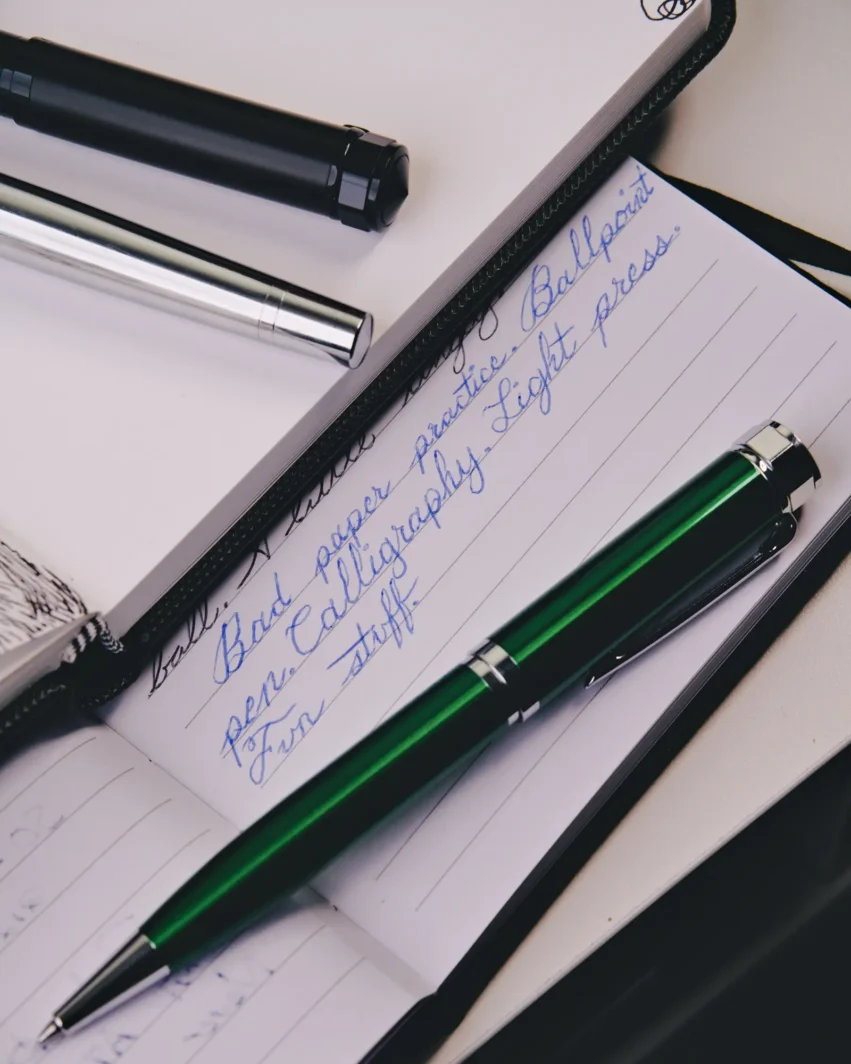 ball. A little
Bad paper practice. Ballpoint
pen. Calligraphy. Light press.
Fun stuff.